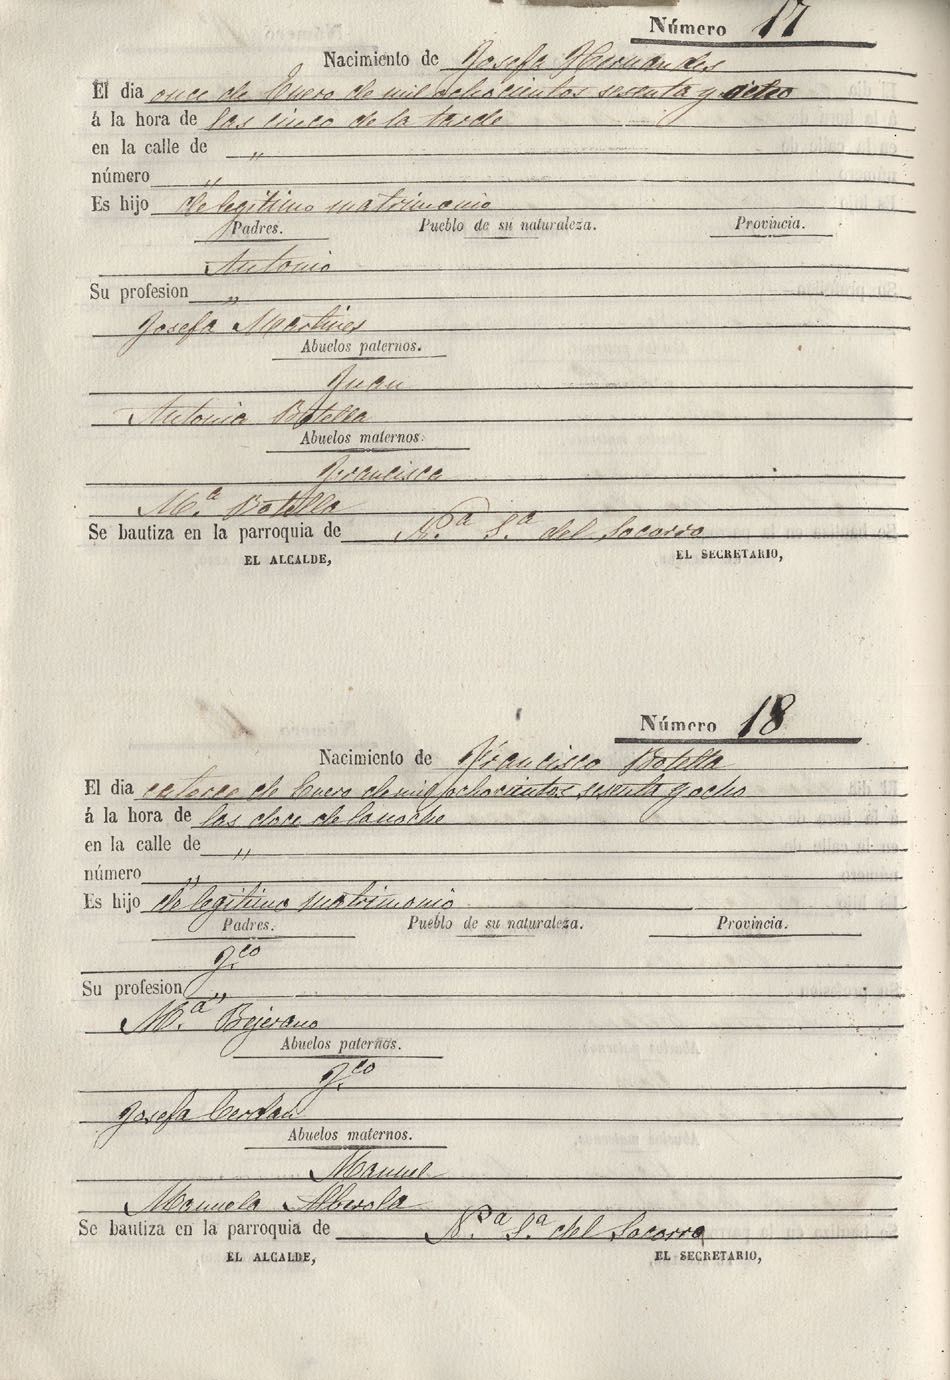 Número 17
Nacimiento de Josefa Hernandes
El dia once de Enero de mil ochocientos sesenta y ocho
á la hora de las cinco de la tarde
en la calle de "
número "
Es hijo de legitimo matrimonio
Padres. Pueblo de su naturaleza. Provincia.
Antonio
Su profesion "
Josefa Martines
Abuelos paternos.
Juan
Antonia Botella
Abuelos maternos.
Francisca
M.ª Botella
Se bautiza en la parroquia de N.ª S.ª del Socorro
EL ALCALDE, EL SECRETARIO,
Número 18
Nacimiento de Francisco Botella
El dia catorce de Enero de mil ochocientos sesenta y ocho
á la hora de las doce de la noche
en la calle de "
número "
Es hijo de legitimo matrimonio
Padres. Pueblo de su naturaleza. Provincia.
F.co
Su profesion "
M.ª Bejerano
Abuelos paternos.
F.co
Josefa Cerdan
Abuelos maternos.
Manuel
Manuela Alberola
Se bautiza en la parroquia de N.ª S.ª del Socorro
EL ALCALDE, EL SECRETARIO,